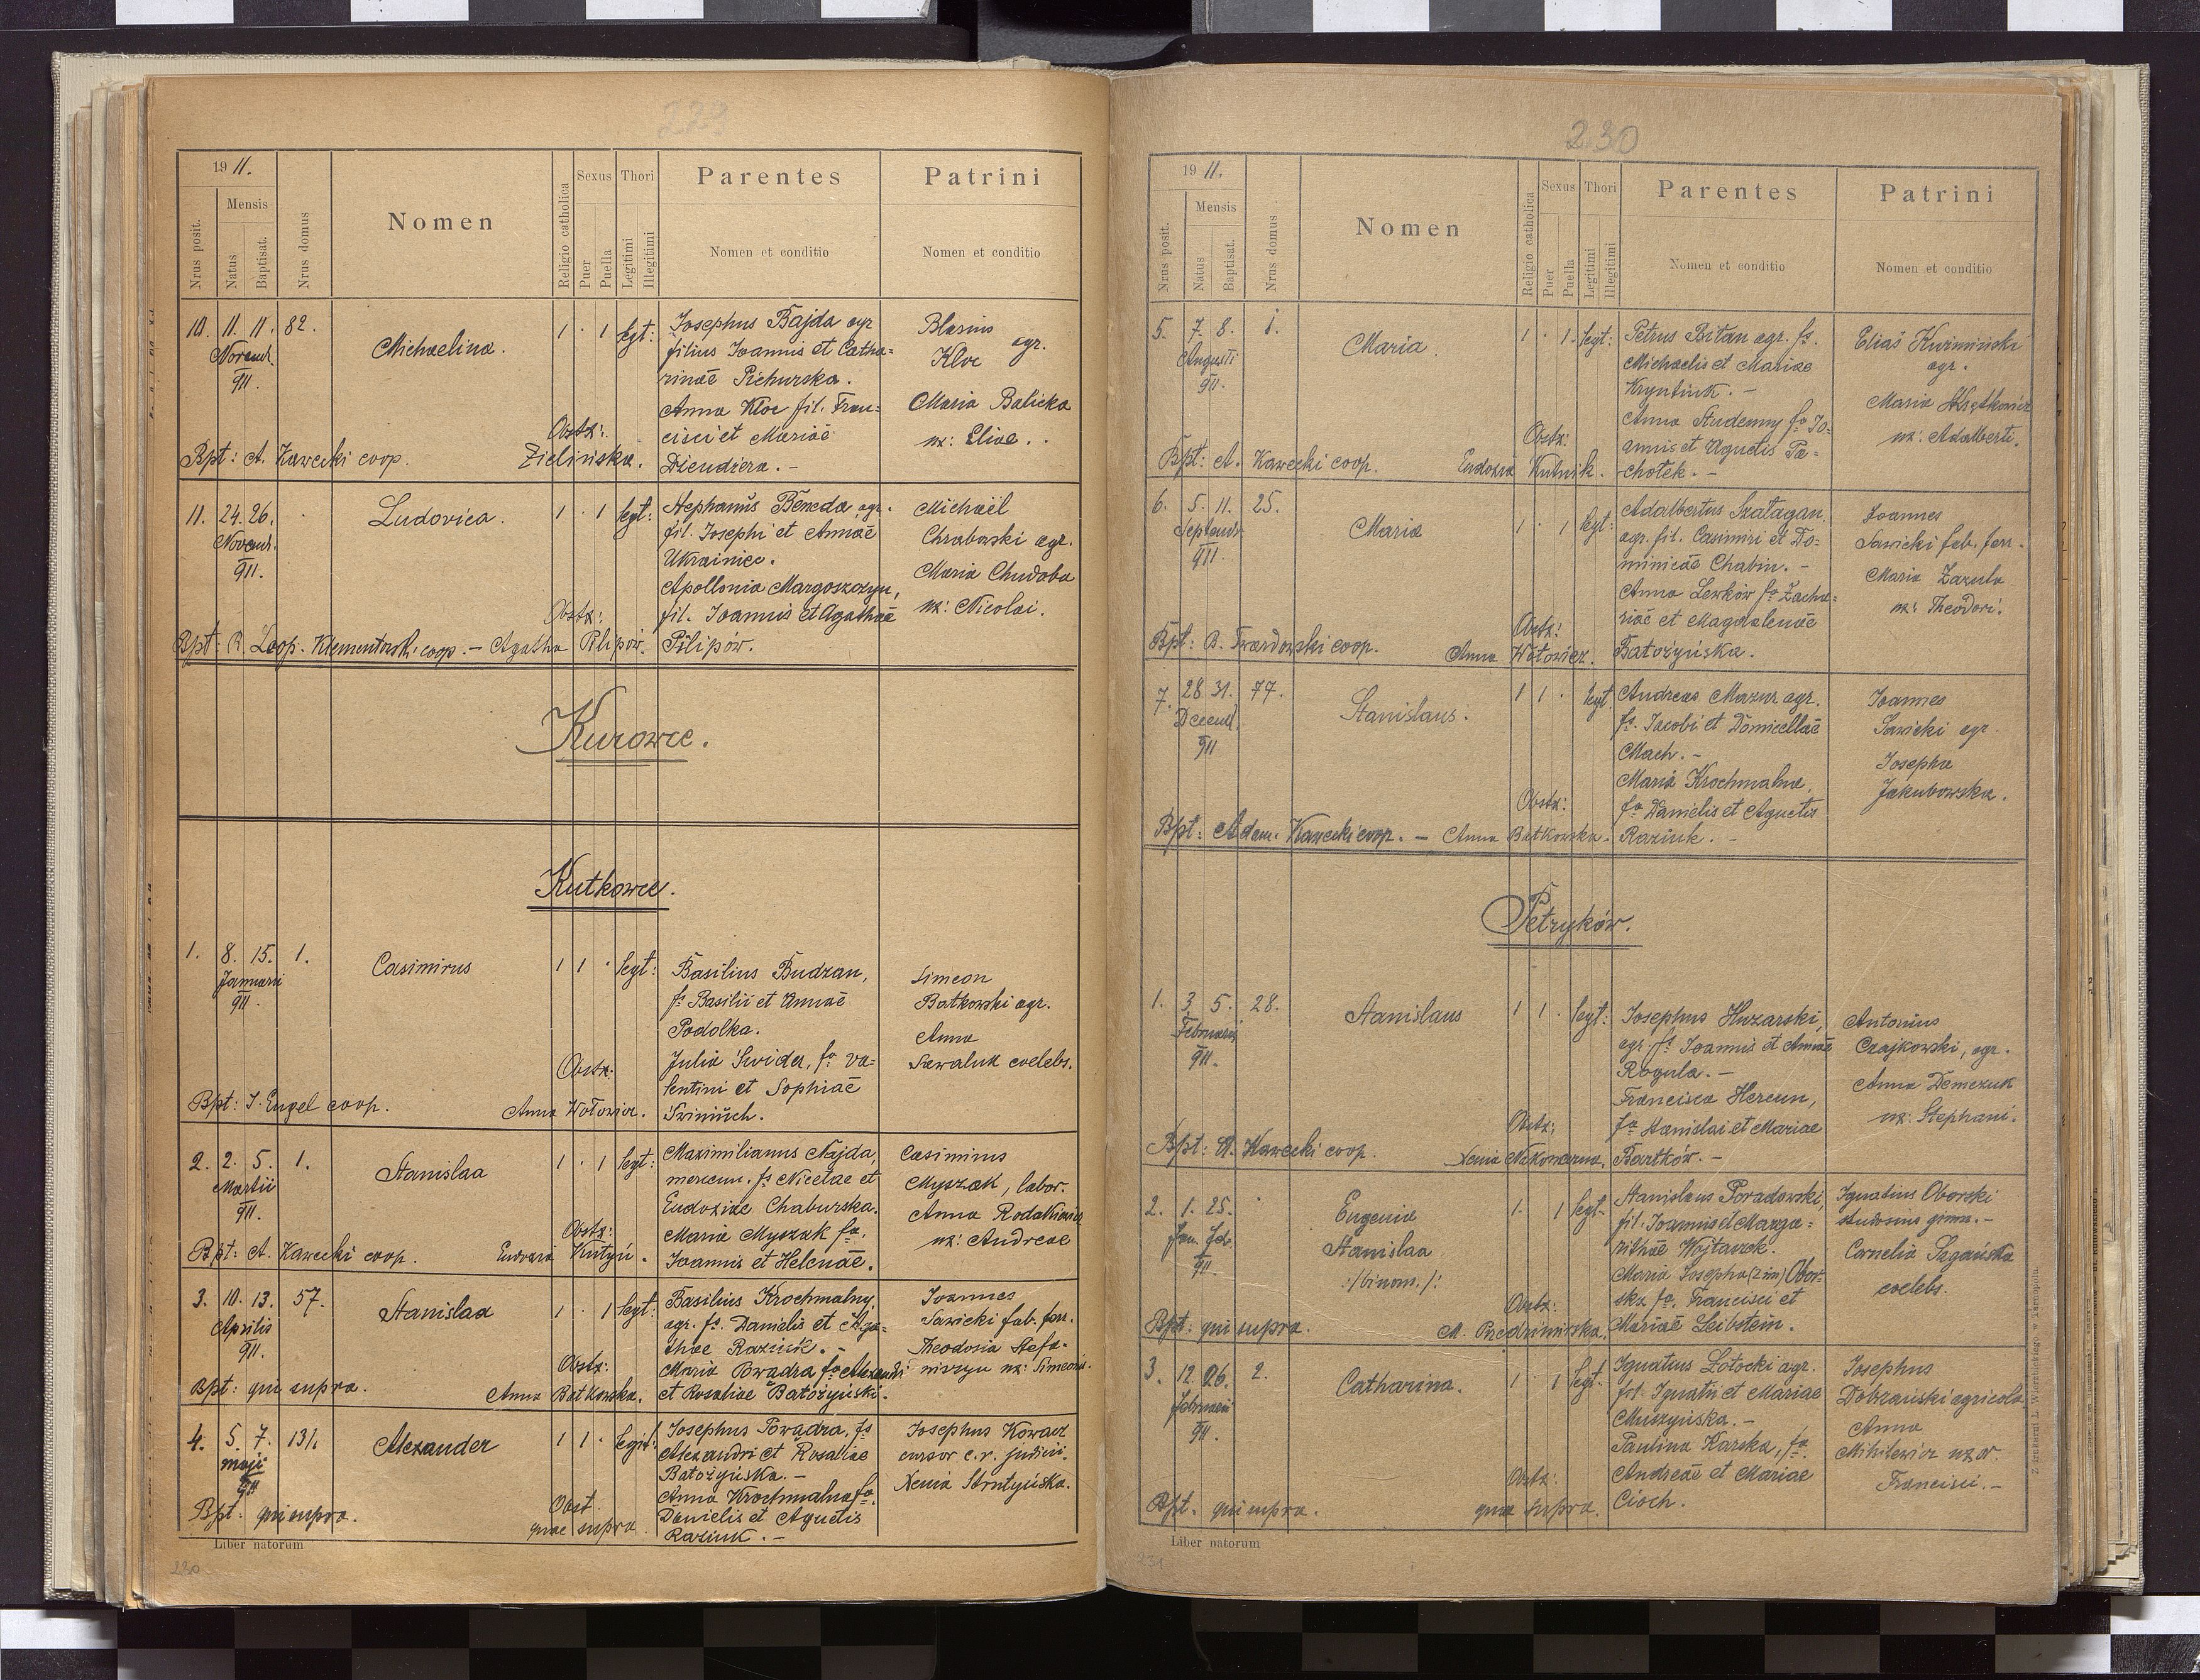 229
1911.
Mensis
Nrus posit.
Natus
Baptisat.
Nrus domus
Nomen
Religio catholica
Sexus
Puer
Puella
Thori
Legitimi
Illegitimi
Parentes
Nomen et conditio
Patrini
Nomen et conditio
10. 11. 11. 82.
Novemb.
911.
Michaelina.
1 · 1 legt:
Josephus Bajda agr
filius Joannis et Catha=
rinae Pichurska.
Anna Kloc fil. Fran=
cisci et Mariae
Dziendziera. -
Blasius
agr.
Kloc
Maria Balicka
ux: Eliae.
Obstx:
Zielińska.
Bpt: A. Kawecki coop.
11. 24. 26. ·
Novemb.
911.
Ludovica.
1 · 1 legt:
Stephanus Beneda, agr.
fil. Josephi et Annae
Ukrainiec.
Apollonia Margoszczyn,
fil. Joannis et Agathae
Filipów.
Michaël
Chrabowski agr.
Maria Chudoba
ux: Nicolai.
Obstx:
Agatha Filipów.
Bpt: R. Leop. Klementowski coop. -
Kurowce.
Kutkowce.
1. 8. 15. 1.
Januarii
911.
Casimirus
1 1 · legt:
Basilius Budzan,
fs Basilii et Annae
Podolka.
Julia Świder, fa Va=
lentini et Sophiae
Swiniuch.
Simeon
Batkowski agr.
Anna
Sawaluk coelebs.
Obstx:
Anna Wołowicz.
Bpt: J. Engel coop.
2. 2. 5. 1.
Martii
911.
Stanislaa
1 · 1 legt:
Maximilianus Najda,
mercen. fs Nicetae et
Eudoxiae Chaburska.
Maria Myszak fa.
Joannis et Helenae.
Casimirus
Myszak, labor.
Anna Rodakiewicz
ux: Andreae
Obstx:
Bpt: A. Kawecki coop.
3. 10. 13. 57.
Aprilis
911.
Stanislaa
1 · 1 legt:
Basilius Krochmalny,
agr. fs. Danielis et Aga=
thae Raziuk. -
Maria Powadra fa Alexandri
et Rosaliae Batożyński.
Joannes
Sawicki fab. ferr.
Theodosia Stefa-
niszyn ux: Simeonis.
Obstx:
Anna Batkowska.
Bpt: qui supra.
4. 5. 7. 131.
maji
911
Alexander
1 1 · legit:
Josephus Powadra, fs
Alexandri et Rosaliae
Batożyńska. -
Anna Krochmalna fa.
Danielis et Agnetis
Raziuk. -
Josephus Kowacz
cursor c.r. judicii.
Xenia Strutyńska.
Obst.
quae supra.
Bpt: qui supra.
Liber natorum
230
230
1911.
Mensis
Nrus posit.
Natus
Baptisat.
Nrus domus
Nomen
Religio catholica
Sexus
Puer
Puella
Thori
Legitimi
Illegitimi
Parentes
Nomen et conditio
Patrini
Nomen et conditio
5. 7. 8. 1.
Augusti
911.
Maria.
1 · 1. legt:
Petrus Bitan agr. fs.
Michaelis et Mariae
Kryntiuk. -
Anna Studenny fa Jo-
annis et Agnetis Pa=
chotek. -
Eliaś Kuźmiński
agr.
Maria
ux: Adalberti.
Obstx:
Eudoxia Kutnik.
Bpt: A. Kawecki coop.
6. 5. 11. 25.
Septemb
911.
Maria
1 · 1 legt:
Adalbertus Szatagan,
agr. fil. Casimiri et Do=
minicae Chabin. -
Anna Lewków fa Zacha=
riae et Magdalenae
Batożyńska.
Joannes
Sawicki fab. ferr.
Maria Zazula
ux: Theodori.
Obstx:
Anna Wołowicz.
Bpt: B. Twardowski coop.
7. 28 31. 77.
Decemb.
911
Stanislaus.
1 1 · legt
Andreas Mazur agr.
fs. Jacobi et Domicellae
Mach. -
Maria Krochmalna,
fa Danielis et Agnetis
Raziuk. -
Joannes
Sawicki agr.
Josepha
Jakubowska.
Obstx:
Anna Batkowska.
Bpt: Adam. Kawecki coop. -
Petryków.
1. 3. 5. 28.
Februarii
911.
Stanislaus
1 1 · legt:
Josephus Huzarski,
agr. fs Joannis et Annae
Rogula. -
Francisca Hercun,
fa Stanislai et Mariae
Bartków. -
Antonius
Czajkowski, agr.
Anna Demczuk
ux: Stephani.
Obstx:
Xenia Nakoneczna.
Bpt: A. Kawecki coop.
2. 1. 25. ·
Jan. Feb.
911.
Eugenia
Stanislaa
:/binom./:
1. 1 legt.
Stanislaus Poradowski,
fil. Joannis et Marga=
rithae Wojtaszek.
Maria Josepha (2 im) Obor-
ska fa. Francisci et
Mariae Leibstein.
Ignatius Oborski
studosus gimn. -
Cornelia Segańska
coelebs.
Obstx:
Bpt: qui supra.
3. 12. 26. 2.
Februarii
911.
Catharina.
1 · 1 legt.
Ignatius Łotocki agr.
fil. Ignatii et Mariae
Muszyńska. -
Paulina Karska, fa.
Andreae et Mariae
Cioch.
Josephus
Dobrzański agricola
Anna
Mihilewicz uxor
Francisci. -
Obstx:
quae supra.
Bpt. qui supra.
Liber natorum
231
Z drukarni L. Wierzbickiego w Tarnopolu.